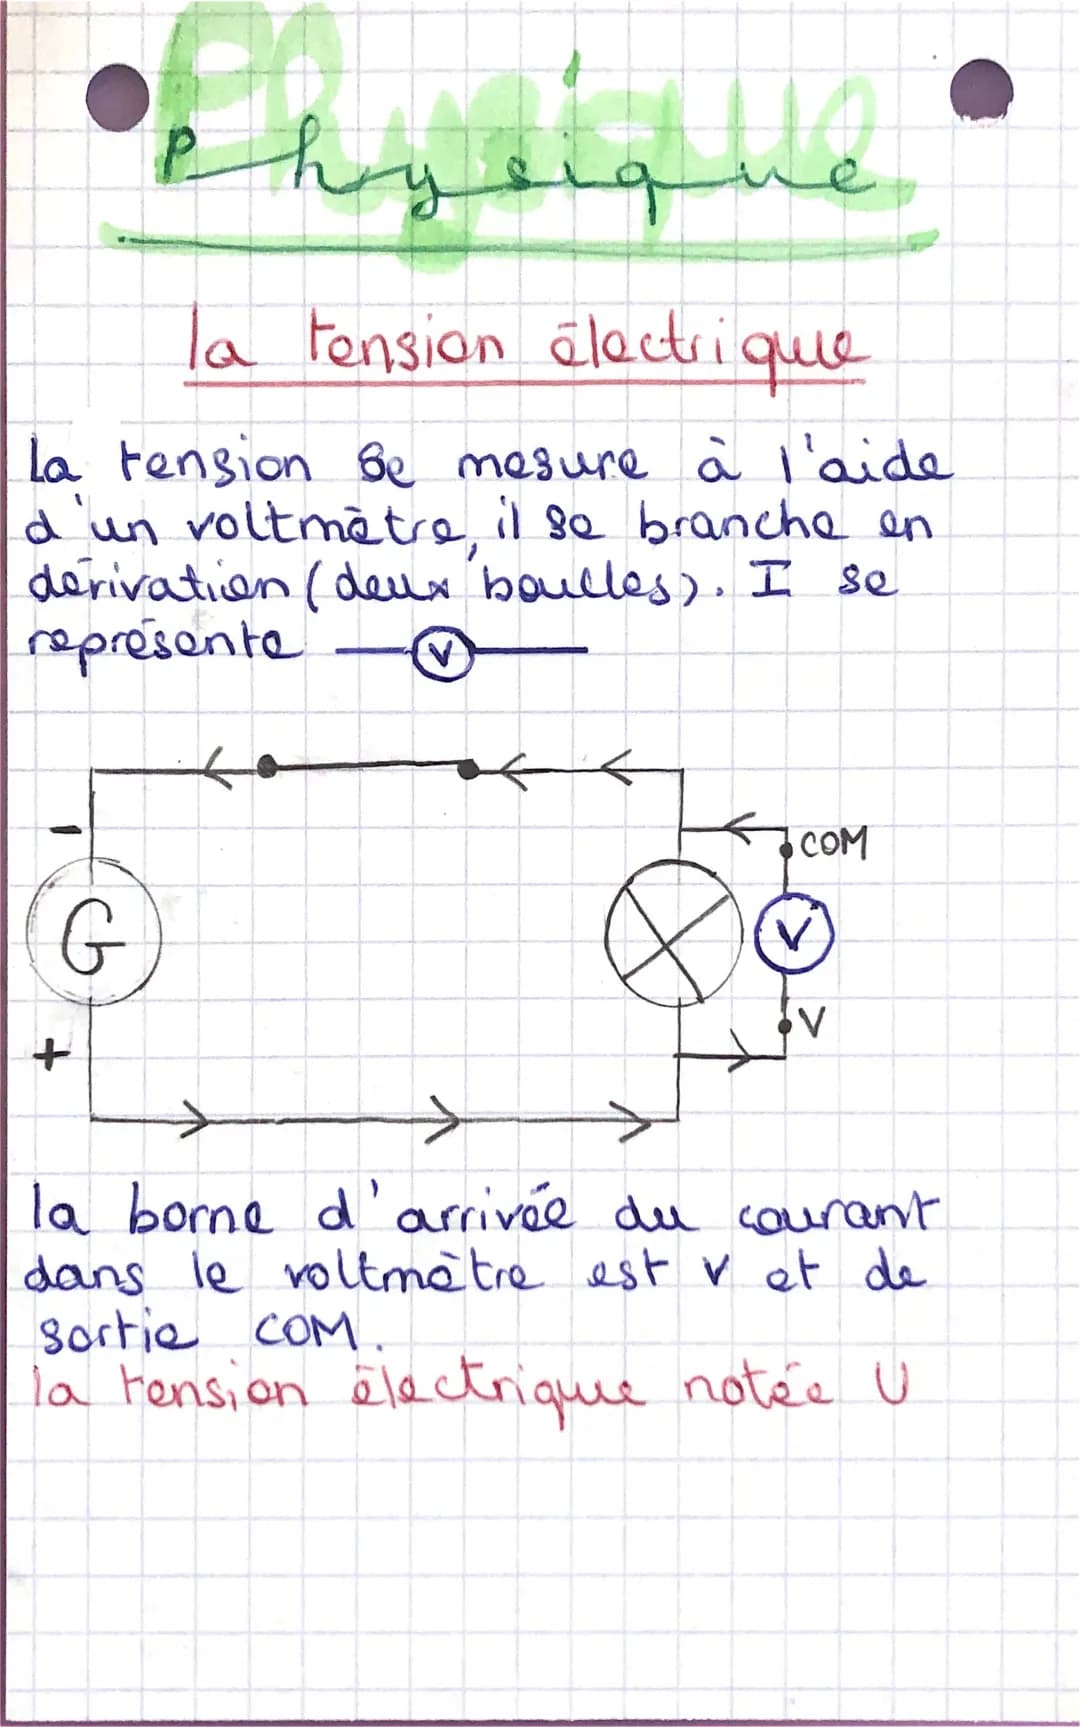 Physique
la tension électrique
La tension se mesure à l'aide
d'un voltmètre, il se branche en
dérivation (deux boucles). I se
représente —(V)—
-
COM
G
V
V
+
la borne d'arrivée du courant
dans le voltmètre est V et de
sortie COM.
la tension électrique notée U